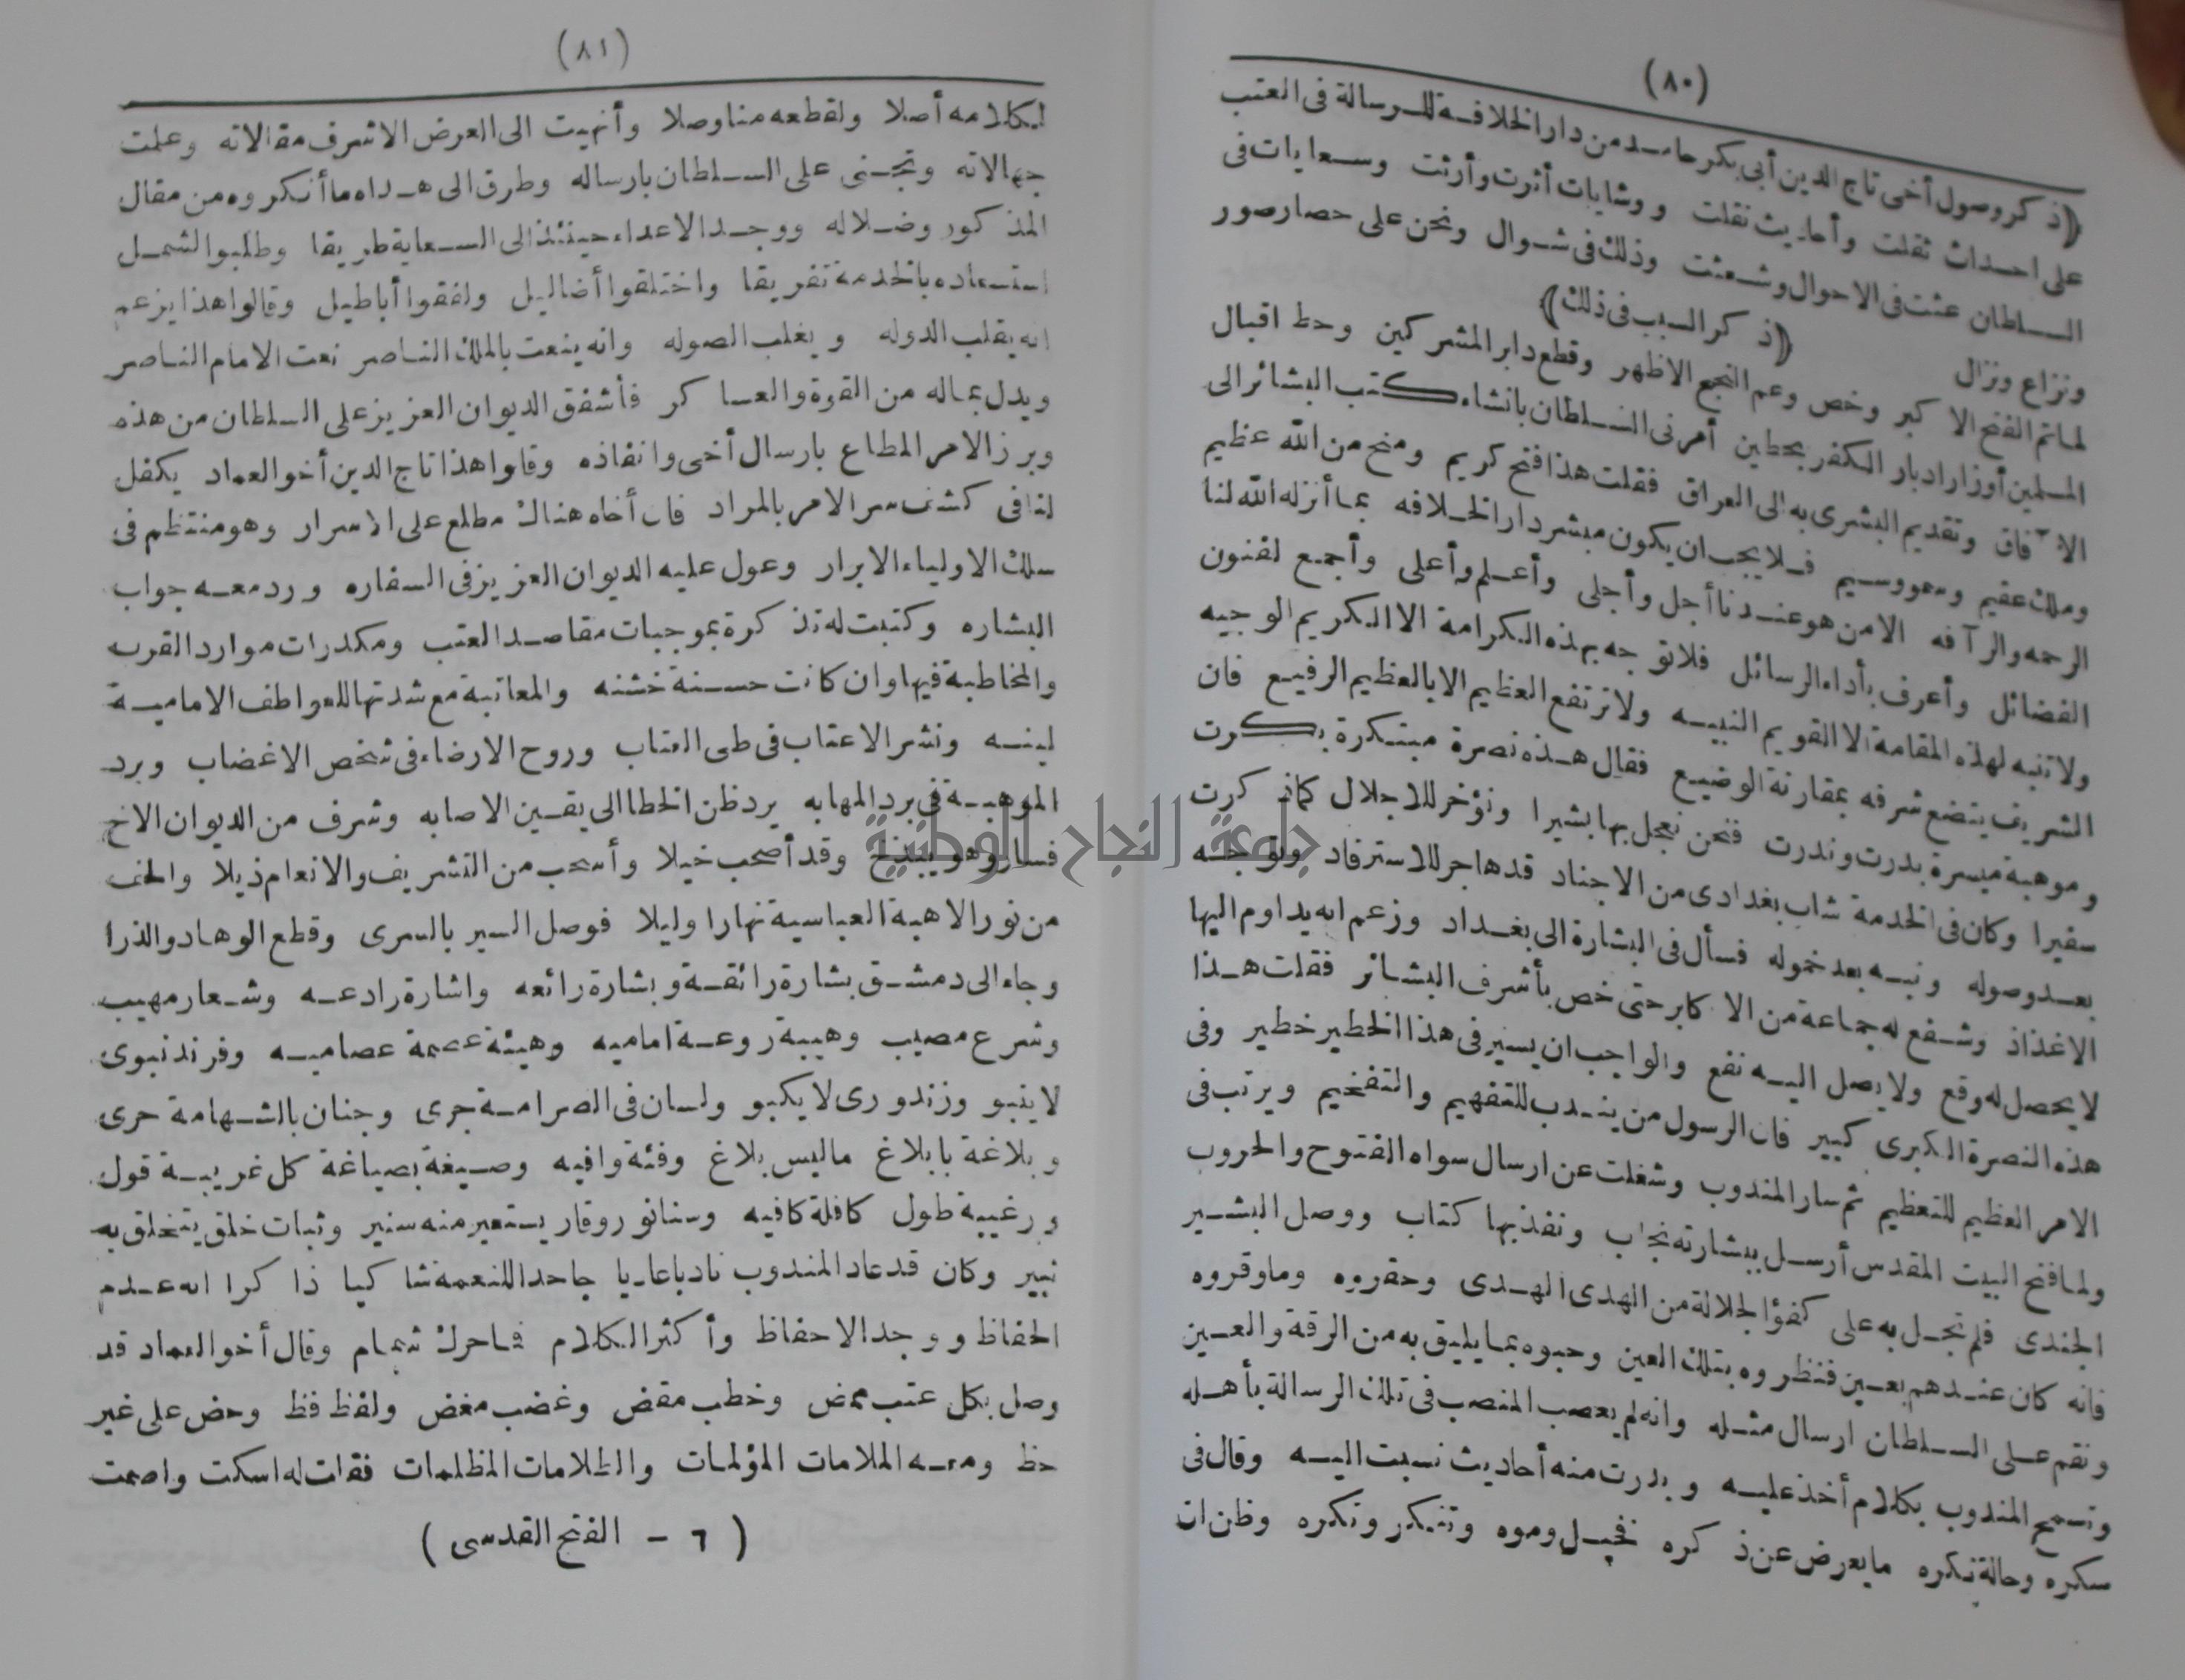 (٨٠)
﴿ذكر وصول أخى تاج الدين أبى بكر حامد من دار الخلافة للرسالة فى العتب
على احداث ثقلت وأحاديث نقلت ووشايات أثرت وأرثت وسعايات فى
السلطان عثت فى الاحوال وشعثت وذلك فى شوال ونحن على حصار صور
ونزاع ونزال ﴿ذكر السبب فى ذلك﴾
لما تم الفتح الاكبر وخص وعم النجح الاظهر وقطع دابر المشركين وحط اقبال
المسلمين أوزار ادبار الكفر بحطين أمرنى السلطان بانشاء كتب البشائر الى
الآفاق وتقديم البشرى به الى العراق فقلت هذا فتح كريم ومنح من الله عظيم
وملك عقيم وسمو وسيم فلا يجب ان يكون مبشر دار الخلافه بما أنزله الله لنا
الرحمه والرآفه الا من هو عندنا أجل وأجلى وأعلم وأعلى وأجمع لفنون
الفضائل وأعرف بأداء الرسائل فلا توجه بهذه الكرامة الا الكريم الوجيه
ولا تنبه لهذه المقامة الا القويم النبيه ولا ترتفع العظيم الا بالعظيم الرفيع فان
الشريف يتضع شرفه بمقارنة الوضيع فقال هذه نصرة مبتكرة بكرت
وموهبة ميسرة بدرت وندرت فنحن نعجل بها بشيرا ونؤخر للاجلال كما ذكرت
سفيرا وكان فى الخدمة شاب بغدادى من الاجناد قد هاجر للاسترفاد وتوجه
بعد وصوله ونبه بعد خموله فسأل فى البشارة الى بغداد وزعم انه يداوم اليها
الاغذاذ وشفع له جماعة من الاكابر حتى خص بأشرف البشائر فقلت هذا
لا يحصل له وقع ولا يصل اليه نفع والواجب ان يسير فى هذا الخطير خطير وفى
هذه النصرة الكبرى كبير فان الرسول من يندب للتفهيم والتفخيم ويرتب فى
الامر العظيم للتعظيم ثم سار المندوب وشغلت عن ارسال سواه الفتوح والحروب
ولما فتح البيت المقدس أرسل ببشارته نجاب ونفذ بها كتاب ووصل البشير
الجندى فلم نجل به على كفؤ الجلالة من الهدى الهدى وحقروه وما وقروه
فانه كان عندهم بعين فنظروه بتلك العين وحبوه بما يليق به من الرقة والعين
ونقم على السلطان ارسال مثله وانه لم يعصب المنصب فى تلك الرسالة بأهله
وتسمح المندوب بكلام أخذ عليه وبدرت منه أحاديث نسبت اليه وقال فى
سكره وحالة نكره ما يعرض عن ذكره فخيل وموه وتنكر وتكره وظن ان
(٨١)
لكلامه أصلا ولقطعه منا وصلا وأنهيت الى العرض الاشرف مقالاته وعلمت
جهالاته وتجنى على السلطان بارساله وطرق الى هداه ما أنكروه من مقال
المذكور وضلاله ووجد الاعداء حينئذ الى السعاية طريقا وطلبوا لشمل
استسعاده بالخدمة تفريقا واختلقوا أضاليل ولفقوا أباطيل وقالوا هذا يزعم
انه يقلب الدوله ويغلب الصوله وانه ينعت بالملك الناصر نعت الامام الناصر
ويدل بماله من القوة والعساكر فأشفق الديوان العزيز على السلطان من هذه
وبرز الامر المطاع بارسال أخى وانفاذه وقالوا هذا تاج الدين أخو العماد يكفل
لنا فى كشف سر الامر بالمراد فان أخاه هناك مطلع على الاسرار وهو منتظم فى
سلك الاولياء الابرار وعول عليه الديوان العزيز فى السفاره ورد معه جواب
البشاره وكتبت له تذكرة بموجبات مقاصد العتب ومكدرات موارد القرب
والمخاطبة فيها وان كانت حسنة خشنه والمعاتبة مع شدتها للعواطف الامامية
لينه ونشر الاعتاب فى طى العتاب وروح الارضاء فى شخص الاغضاب وبرد
الموهبة فى برد المهابه يرد ظن الخطا الى يقين الاصابه وشرف من الديوان الاخ
فسار وهو يبذخ وقد أصحب خيلا وأسحب من التشريف والانعام ذيلا والحف
من نور الاهبة العباسية نهارا وليلا فوصل السير بالسرى وقطع الوهاد والذرا
وجاء الى دمشق بشارة رائقة وبشارة رائعه واشارة رادعه وشعار مهيب
وشرع مصيب وهيبة روعة اماميه وهيئة عصمة عصاميه وفرند نبوى
لا ينبو وزند ورى لا يكبو ولسان فى الصرامة جرى وجنان بالشهامة حرى
وبلاغة بابلاغ ما ليس بلاغ وفئة وافيه وصيغة بصياغة كل غريبة قول
ورغيبة طول كافلة كافيه وسنا نور وقار يستعير منه سنير وثبات خلق يتخلق به
ثبير وكان قد عاد المندوب نادبا عاريا جاحدا للنعمة شاكيا ذاكرا انه عدم
الحفاظ ووجد الاحفاظ وأكثر الكلام فما حرك شمام وقال أخو العماد قد
وصل بكل عتب ممض وخطب مقض وغضب مغض ولفظ فظ وحض على غير
حظ ومعه الملامات المؤلمات والظلامات المظلمات فقلت له اسكت واصمت
(٦ - الفتح القدسى)
جامعة النجاح الوطنية